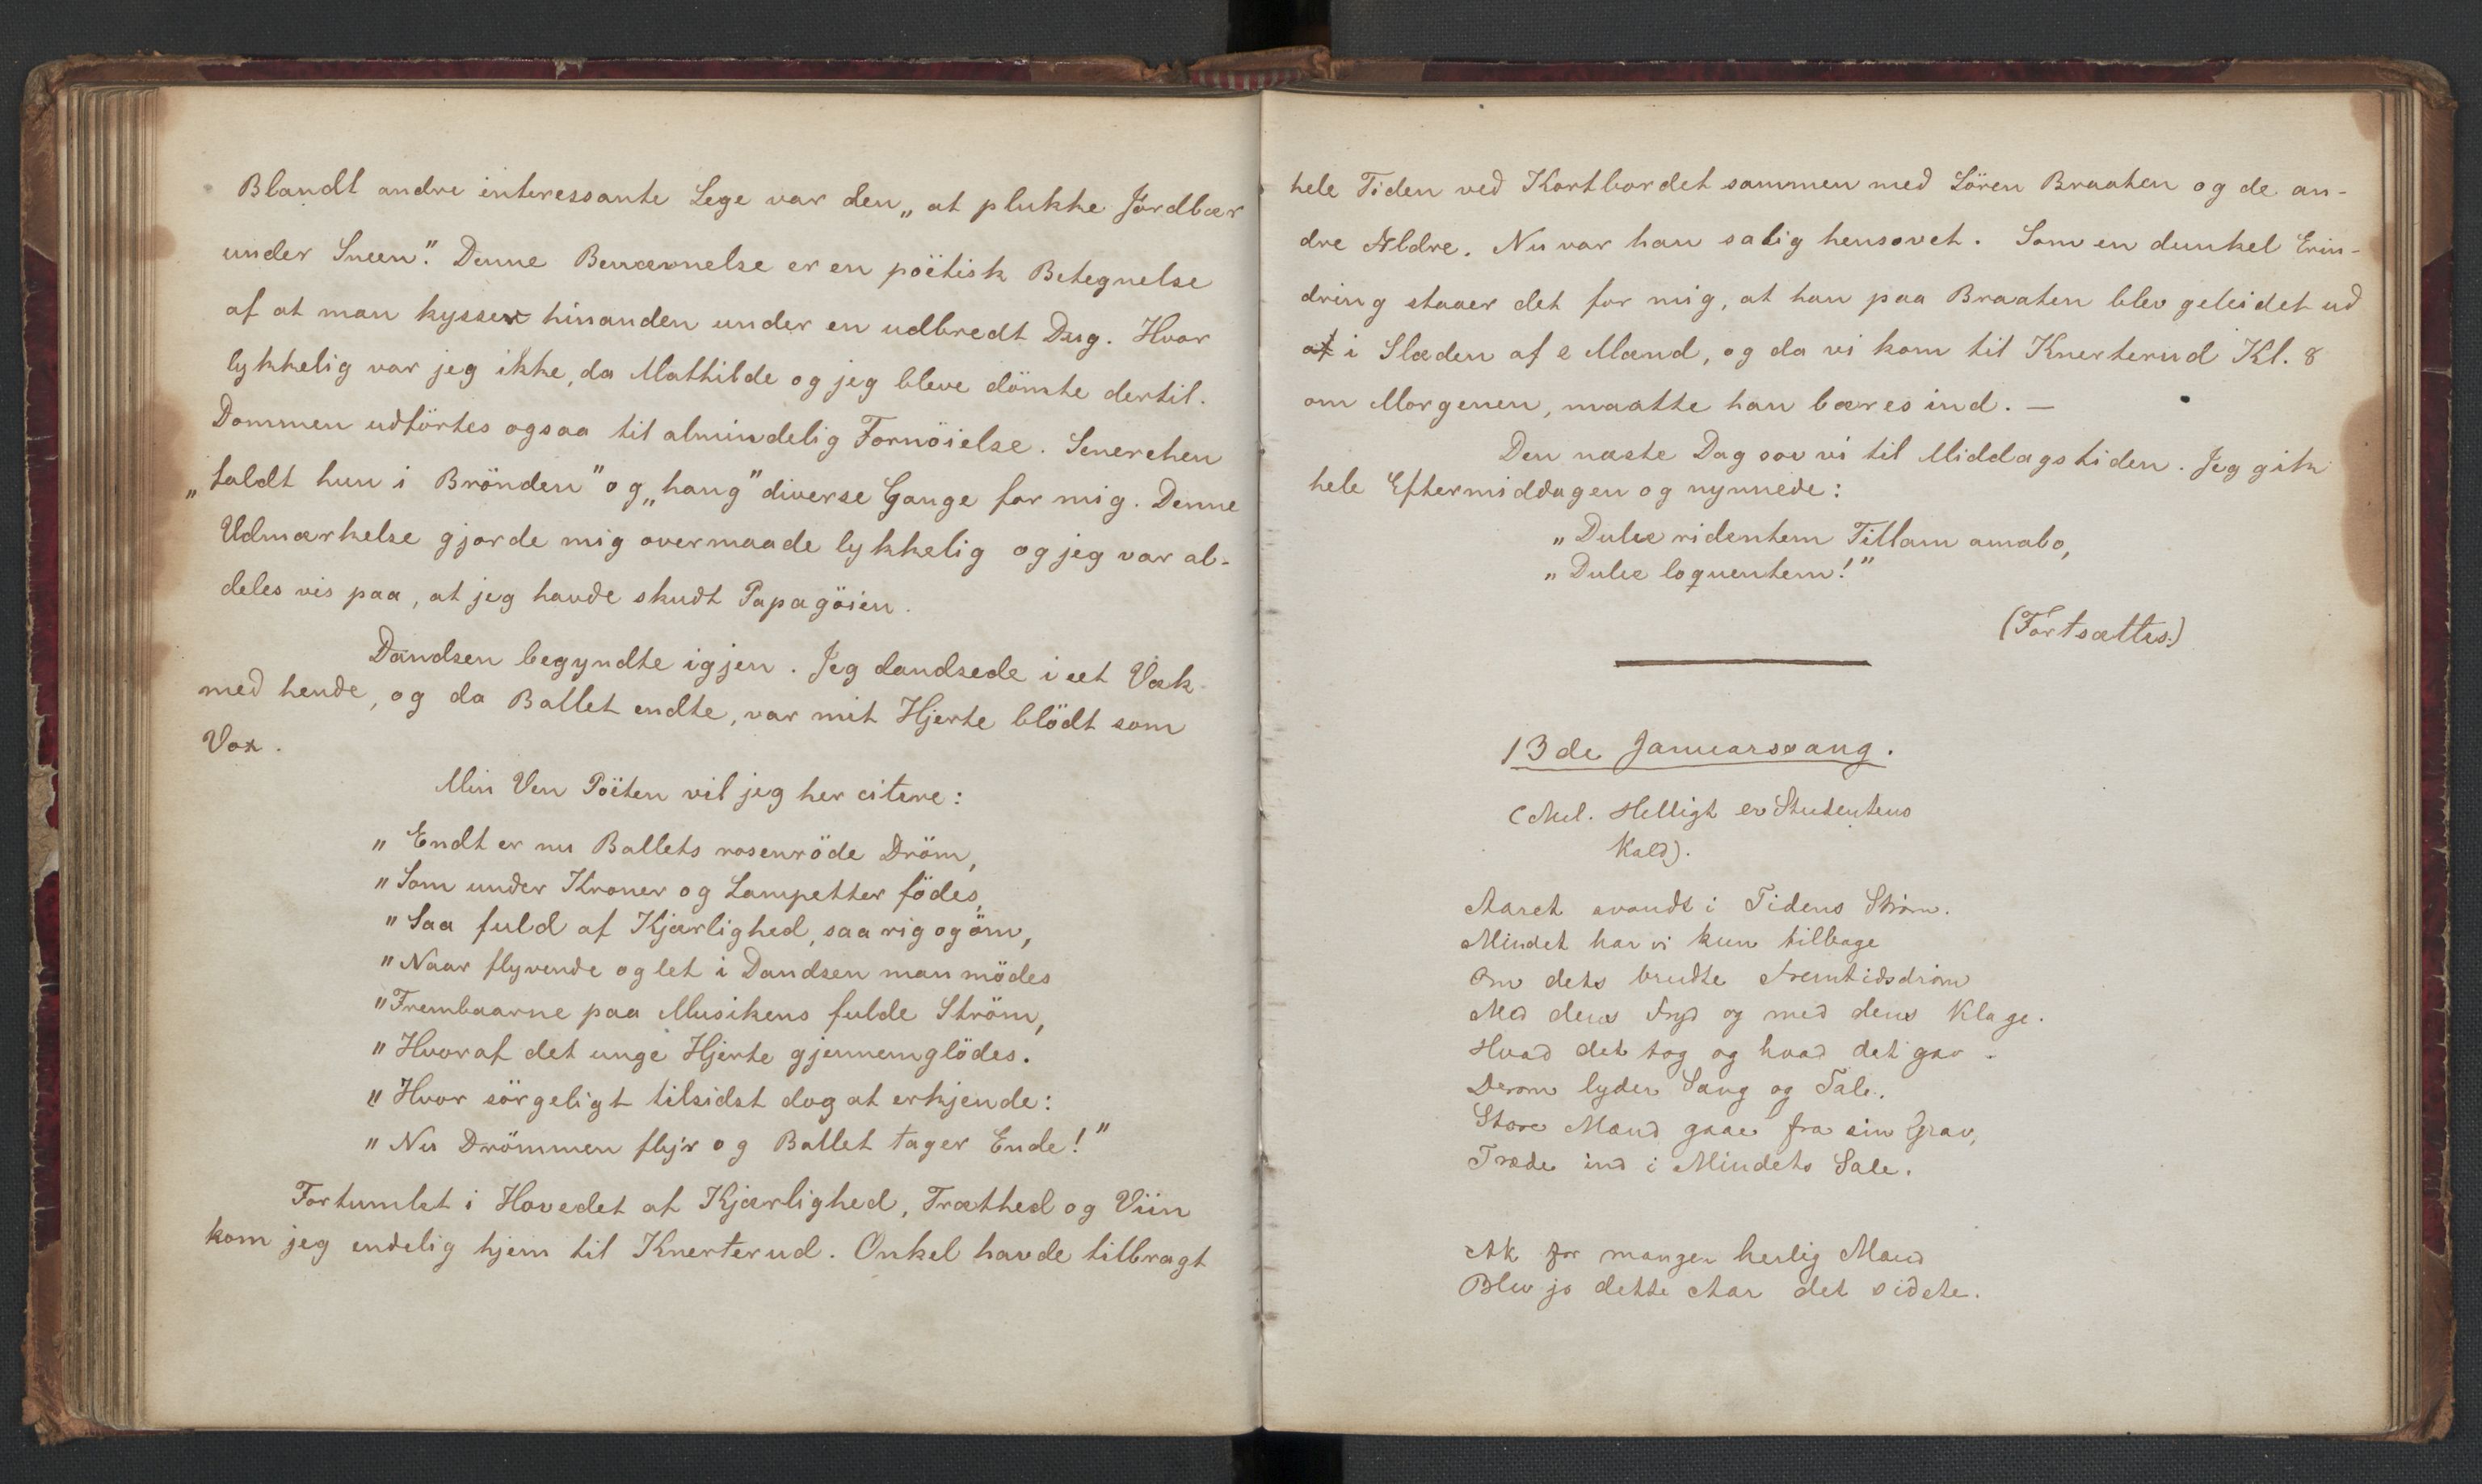 Blandt andre interessante Lege var den „at plukke Jordbær
under Sneen." Denne Benævnelse er en poëtisk Betegnelse
af at man kysser hinanden under en udbredt Dug. Hvor
lykkelig var jeg ikke, da Mathilde og jeg bleve dömte dertil.
Dommen udförtes ogsaa til almindelig Fornöielse. Senerehen
„faldt hun i Brönden" og „hang" diverse Gange for mig. Denne
Udmærkelse gjorde mig overmaade lykkelig og jeg var al-
deles vis paa, at jeg havde skudt Papagöien.
Dandsen begyndte igjen. Jeg dandsede i eet Væk
med hende, og da Ballet endte, var mit Hjerte blödt som
Vox.
Min Ven Poëten vil jeg her citere:
„Endt er nu Ballets rosenröde Dröm,
„Som under Kroner og Lampetter födes,
„Saa fuld af Kjærlighed, saa rig og öm,
„Naar flyvende og let i Dandsen man mödes
„Frembaarne paa Musikens fulde Ström,
„Hvoraf det unge Hjerte gjennemglödes.
„Hvor sörgeligt tilsidst dog at erkjende:
„Nu Drömmen flyr og Ballet tager Ende!"
Fortumlet i Hovedet af Kjærlighed, Træthed og Viin
kom jeg endelig hjem til Knerterud. Onkel havde tilbragt
hele Tiden ved Kortbordet sammen med Sören Braaten og de an-
dre Ældre. Nu var han salig hensovet. Som en dunkel Erin-
dring staaer det for mig, at han paa Braaten blev geleidet ud
af i Slæden af 2 Mænd, og da vi kom til Knerterud Kl. 8
om Morgenen, maatte han bæres ind. —
Den næste Dag sov vi til Middagstiden. Jeg gik
hele Eftermiddagen og nynnede:
„Dulce ridentem Tillam amabo,
„Dulce loquentem!"
(Fortsættes.)
13de Januarsang.
(Mel. Helligt er Studentens
Kald).
Aaret svandt i Tidens Ström.
Mindet har vi kun tilbage
Om dets brudte Fremtidsdröm
Med dens Fryd og med dens Klage.
Hvad det tog og hvad det gav.
Derom lyder Sang og Tale.
Store Mænd gaae fra sin Grav,
Træde ind i Mindets Sale.
Ak for mangen herlig Mand
Blev jo dette Aar det sidste.